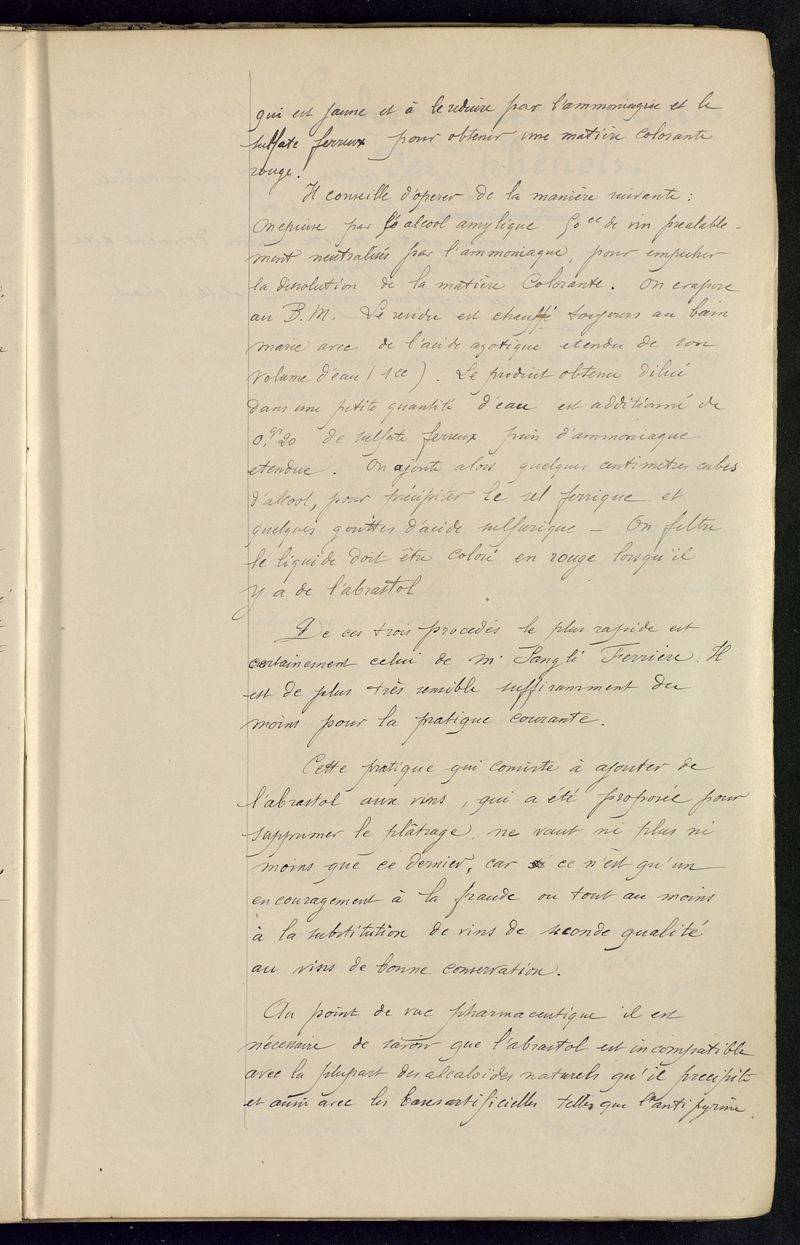 qui est jaune et à le reduire par l'ammoniaque et le
sulfate ferreux pour obtenir une matière colorante
rouge.
Il conseille d'operer de la manière suivante :
On epuise par l'alcool amylique 50cc de vin prealable-
ment neutralisés par l'ammoniaque, pour empecher
la dissolution de la matière Colorante. On evapore
au B.M. Le residu est chauffé toujours au bain
marie avec de l'acide azotique etendu de son
volume d'eau (1cc). Le produit obtenu dilué
dans une petite quantité d'eau est additionné de
0,gr20 de sulfate ferreux puis d'ammoniaque
etendue. On ajoute alors quelques centimetres cubes
d'alcool, pour précipiter le sel ferrique et
quelques gouttes d'acide sulfurique – On filtre
le liquide doit être coloré en rouge lorsqu'il
y a de l'abrastol
De ces trois procedés le plus rapide est
certainement celui de Mr Sanglé Ferrière. Il
est de plus très sensible suffisamment du
moins pour la pratique courante.
Cette pratique qui consiste à ajouter de
l'abrastol aux vins, qui a été proposée pour
supprimer le plâtrage, ne vaut ni plus ni
moins que ce dernier, car ce n'est qu'un
encouragement à la fraude ou tout au moins
à la substitution de vins de seconde qualité
au vins de bonne conservation.
Au point de vue pharmaceutique il est
nécessaire de savoir que l'abrastol est incompatible
avec la plupart des alcaloïdes naturels qu'il precipite
et aussi avec les bases artificielles telles que l'antipyrine.